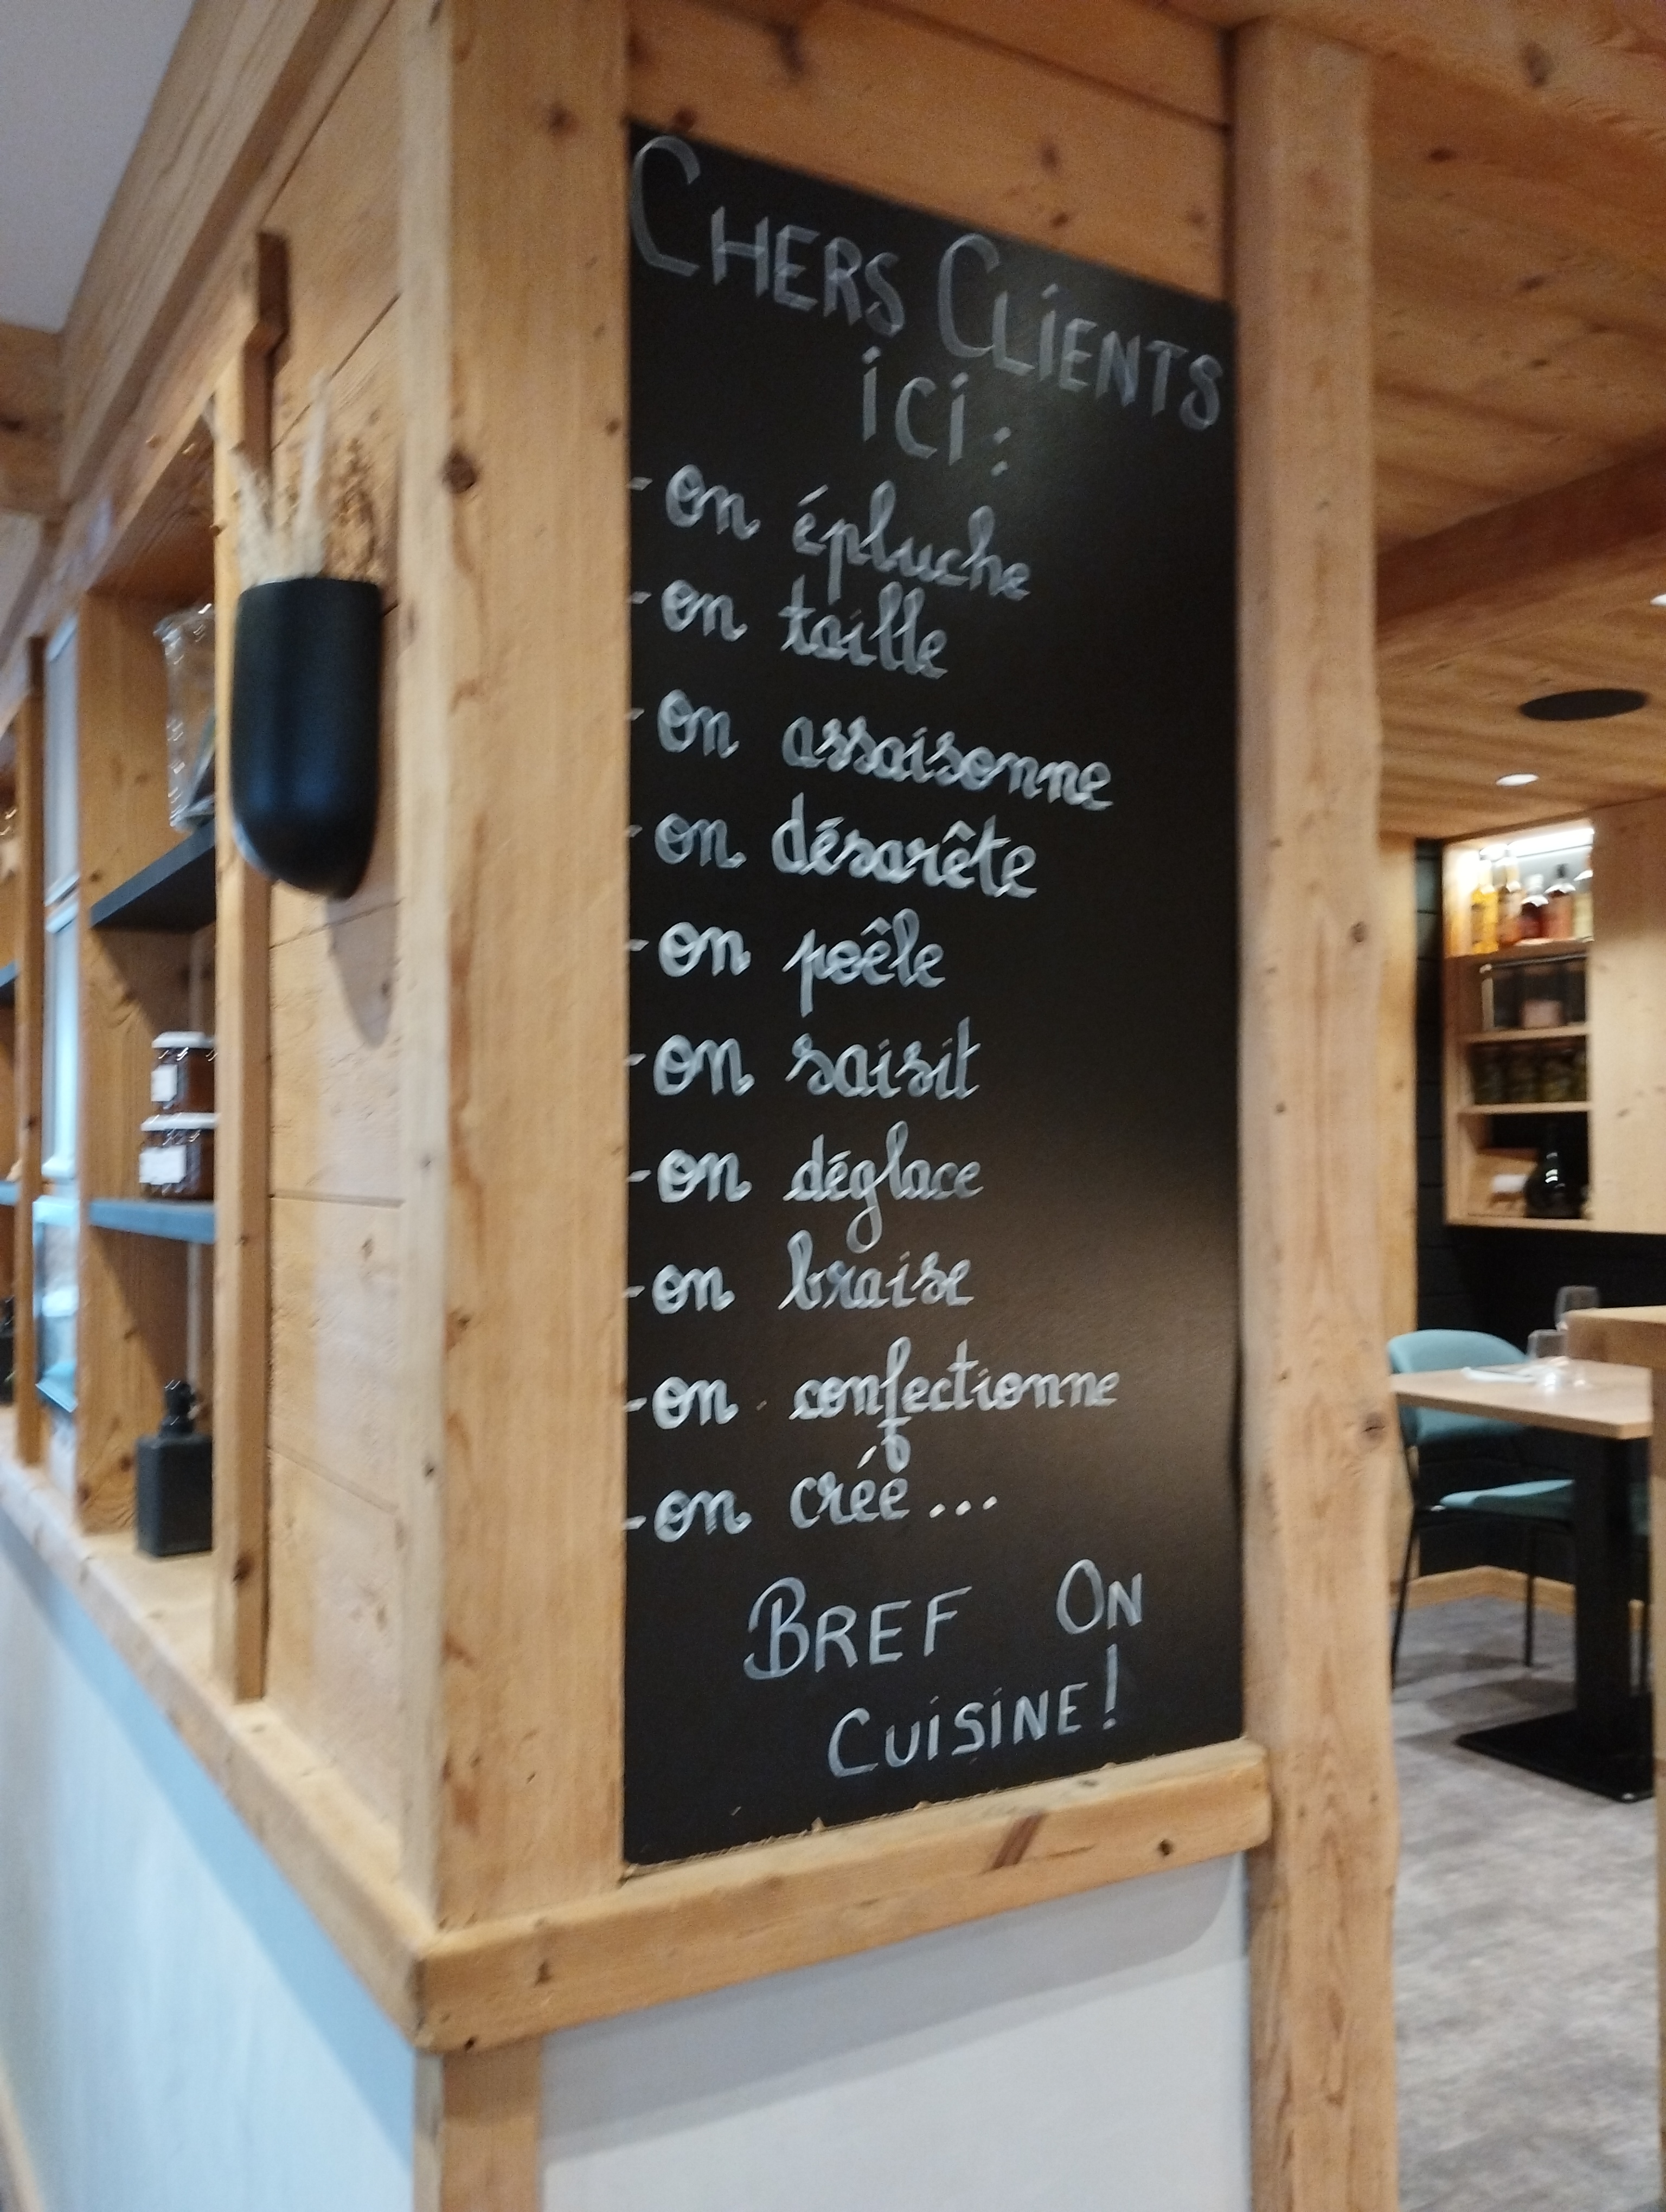 CHERS CLIENTS
ici :
- on épluche
- on taille
- on assaisonne
- on désarête
- on poêle
- on saisit
- on déglace
- on braise
- on confectionne
- on créé...
BREF ON
CUISINE!